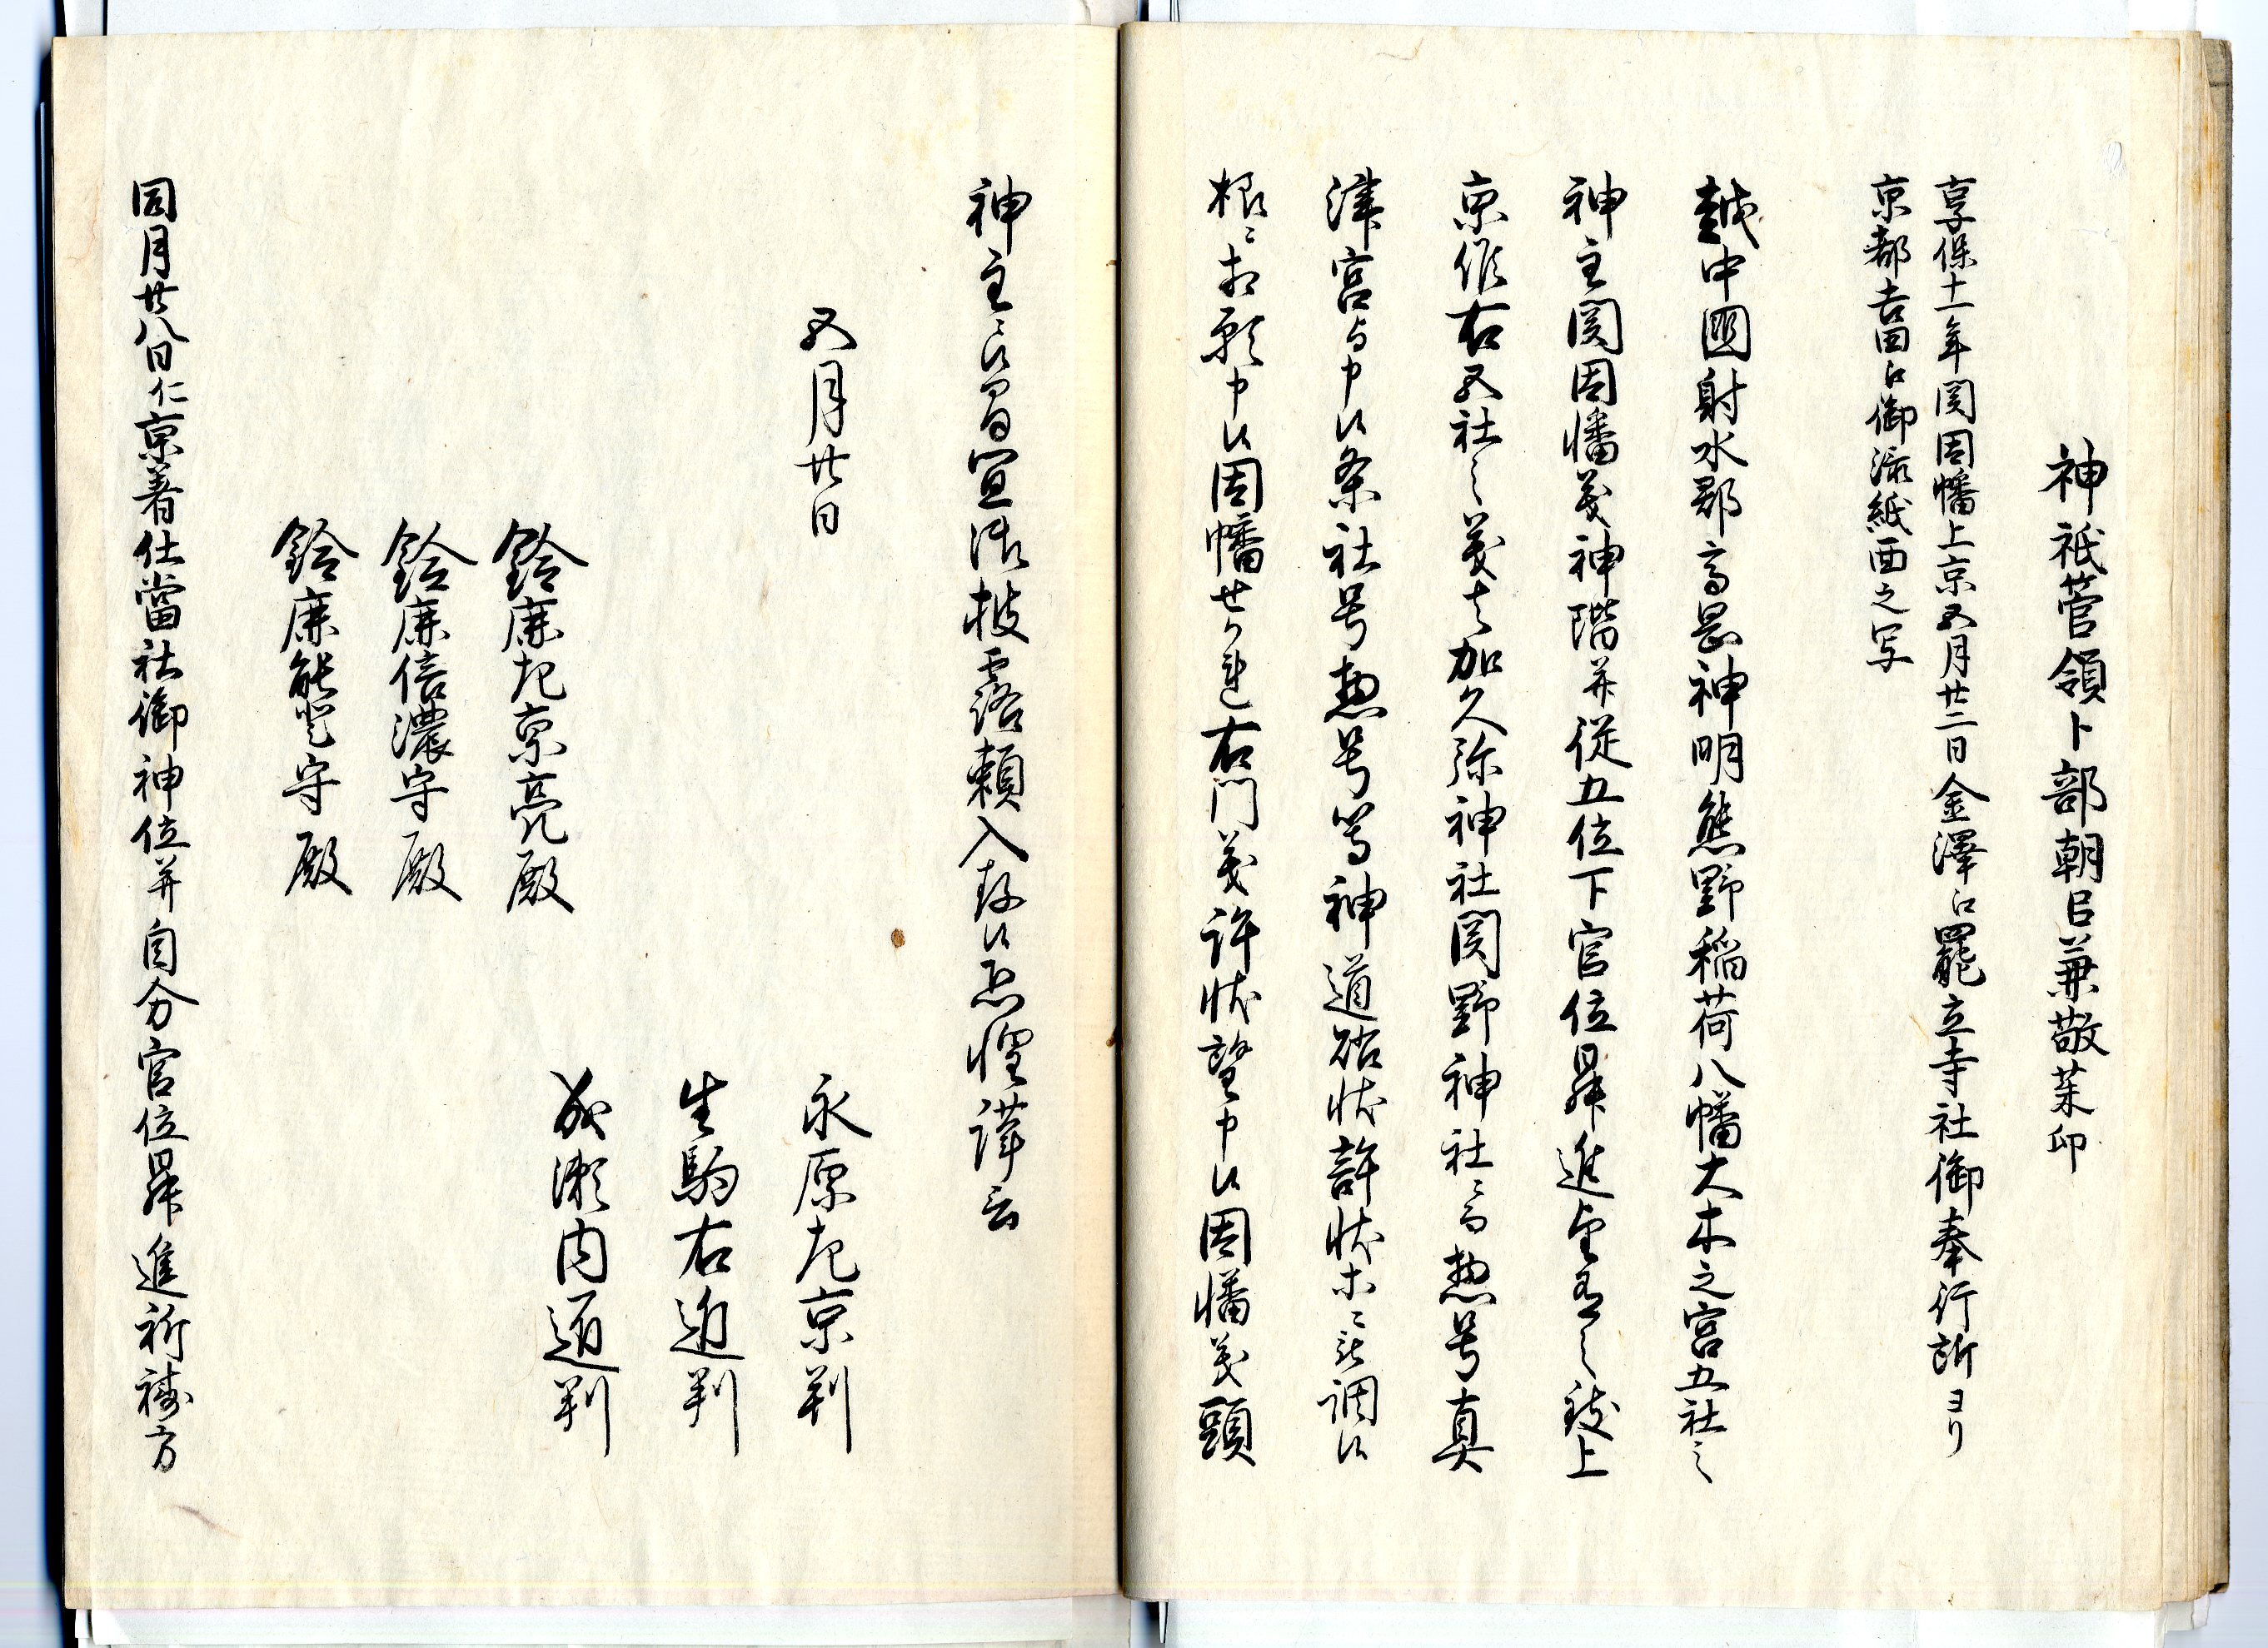 神祇菅領卜部朝臣兼敬朱印
享保十一年関因幡上京五月廿二日金澤江罷立寺社御奉行所ヨリ
京都吉田江御添紙面之写
越中國射水郡高岡神明熊野稲荷八幡大木之宮五社之
神主関因幡義神階并従五位下官位昇進望有之致上
京候右五社之義者加久弥神社関野神社ニ而惣号真
津宮与申候条社号惣号等神道裁状許状等ニ被調候
様ニ相願申候因幡せかれ右門義許状望申候因幡義頭
神主ニ候間宜御披露頼入存候恐惶謹言
五月廿日
永原左京判
生駒右近判
成瀬内匠判
鈴鹿左京亮殿
鈴鹿信濃守殿
鈴鹿能登守殿
同月廿八日仁京着仕當社御神位并自分官位昇進祈祷方